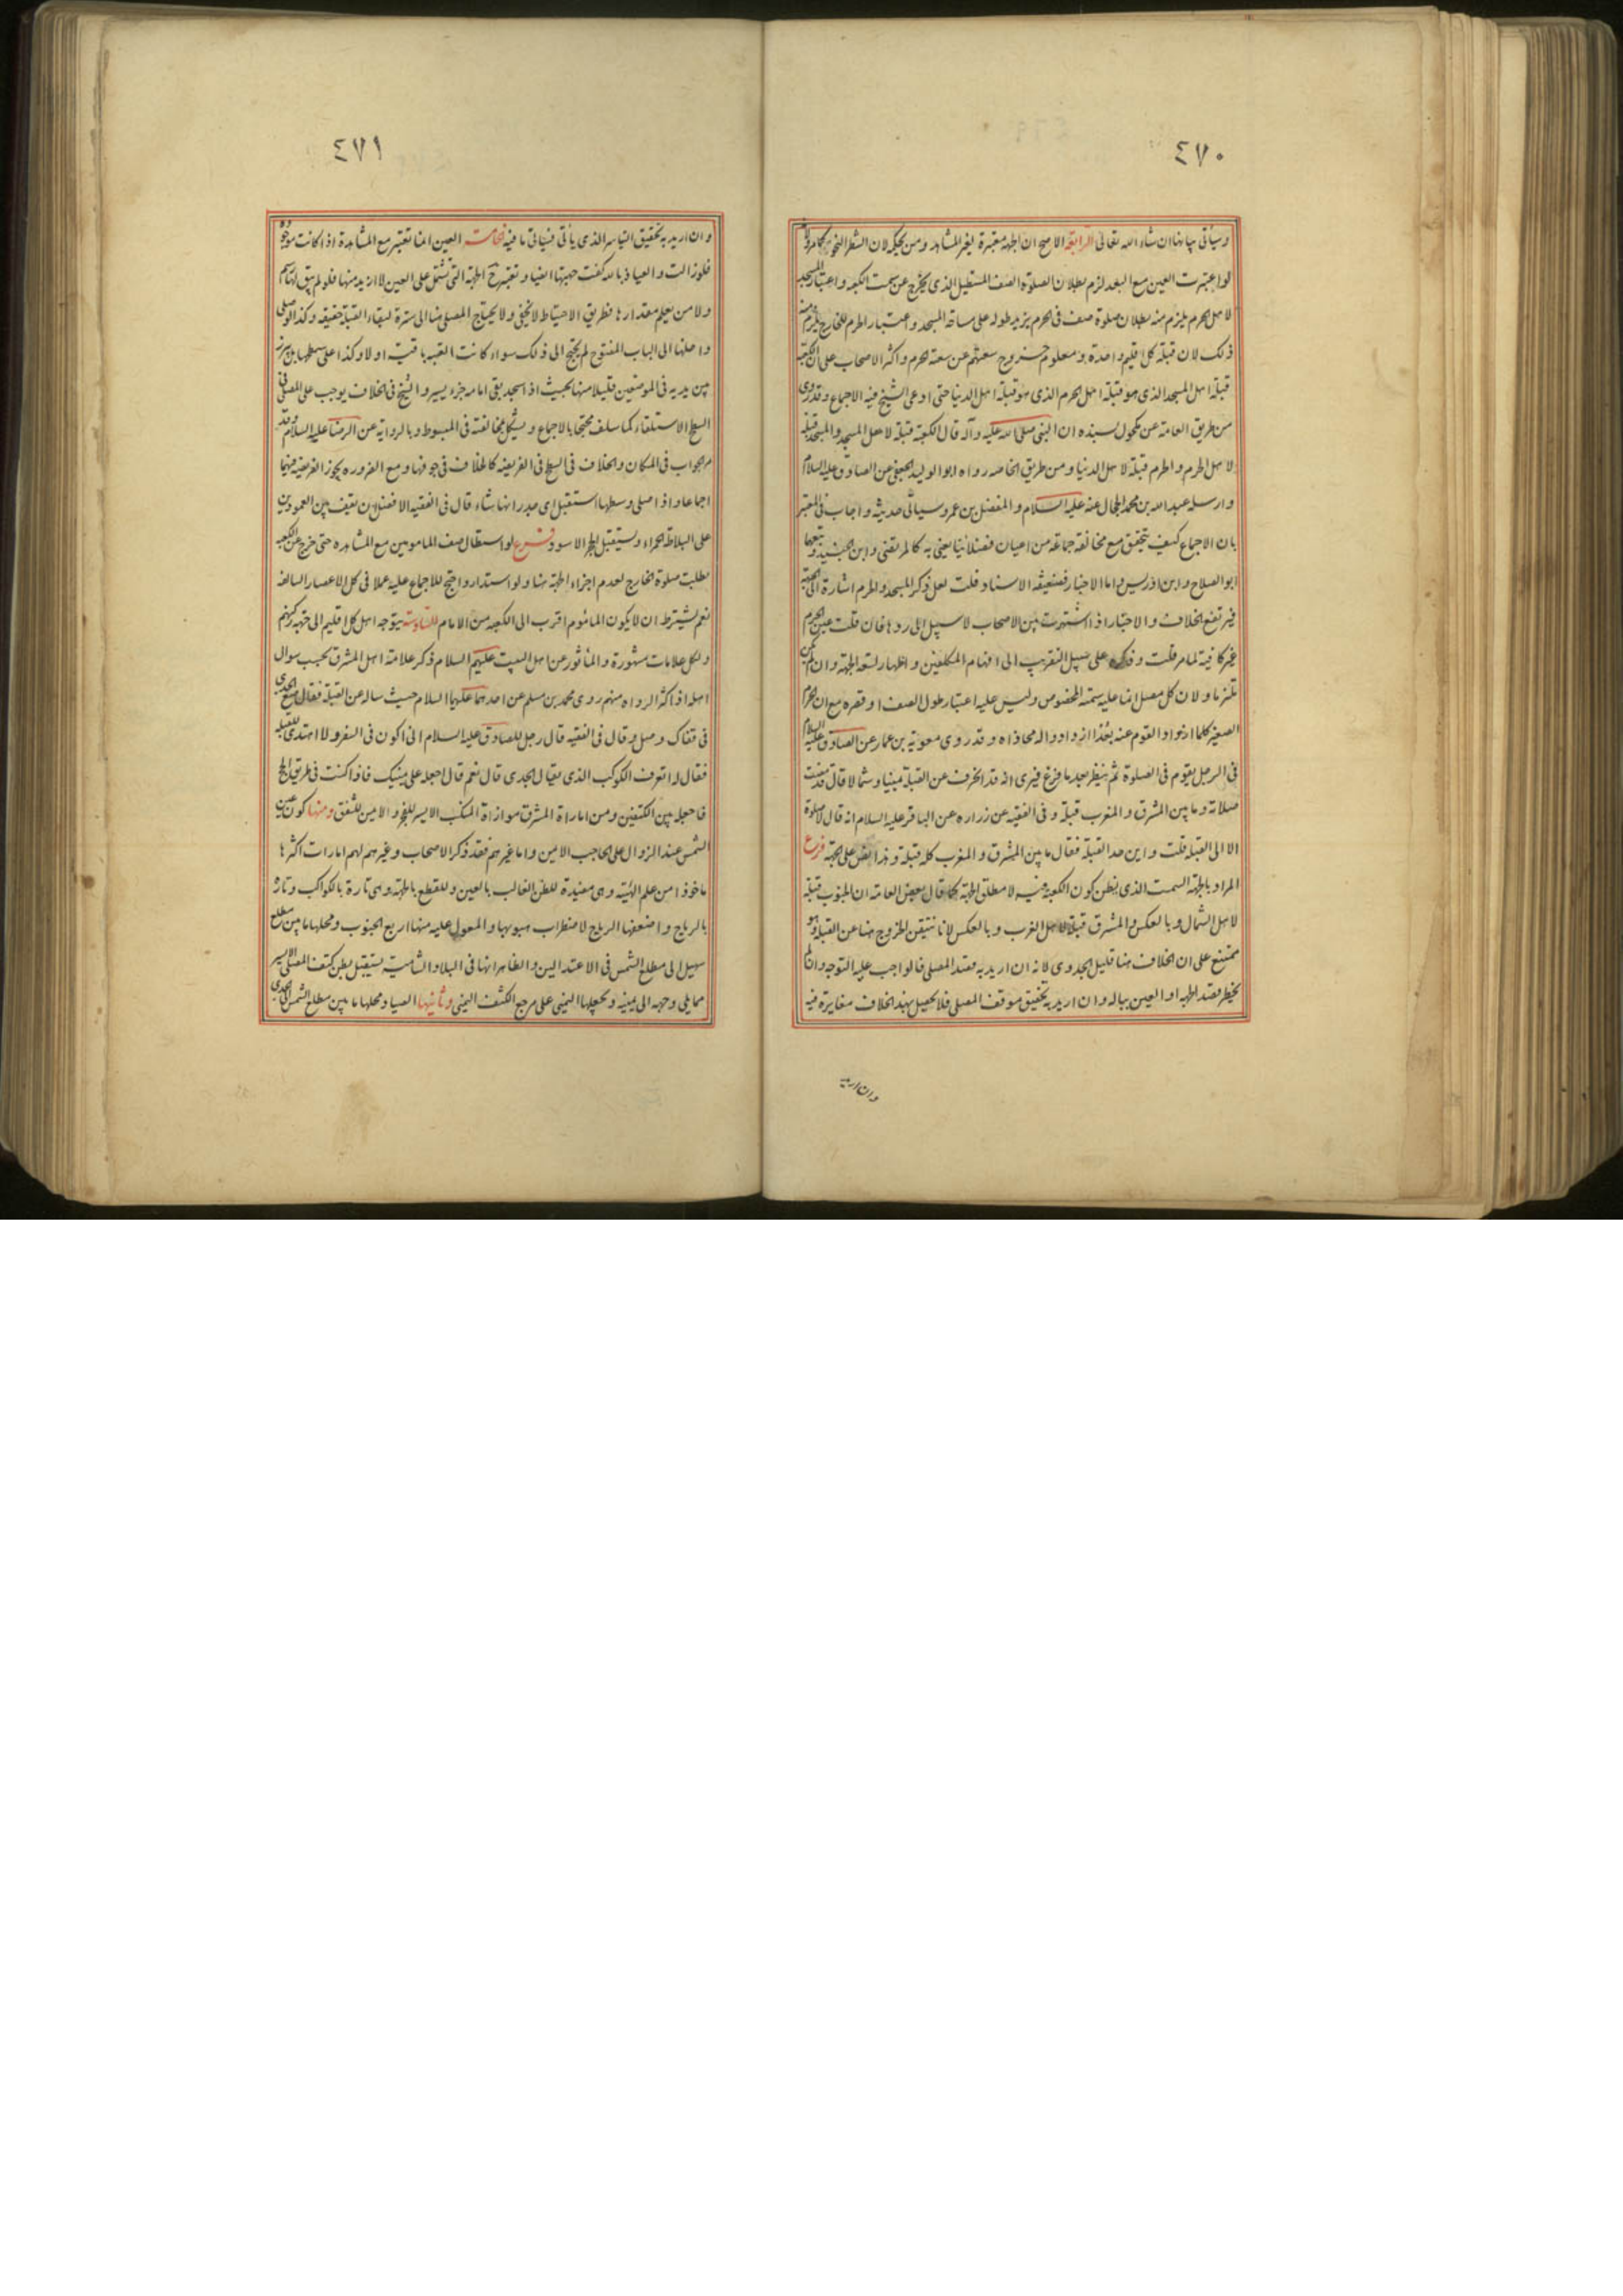 ٤٧٠
وسيأتى بيانها ان شاء الله تعالى الرابعة الاصح ان الجهة معتبرة لغير المشاهد ومن بحكمه لان الشطر النحو كما مر ولانه
لو اعتبرت العين مع البعد لزم بطلان الصلوة الصف المستطيل الذى يخرج عن سمت الكعبه واعتبار المسجد
لاهل الحرم يلزم منه بطلان صلوة صف فى الحرم يزيد طوله على ساحة المسجد واعتبار الحرم للخارج يلزم منه
ذلك لان قبلة كل اقليم واحدة ومعلوم خروج سعتهم عن سعة الحرم واكثر الاصحاب على ان الكعبة
قبلة اهل المسجد الذى هو قبلة اهل الحرم الذى هو قبلة اهل الدنيا حتى ادعى الشيخ فيه الاجماع وقد روى
من طريق العامة عن مكحول بسنده ان النبى صلى الله عليه وآله قال الكعبة قبلة لاهل المسجد والمسجد قبلة
لاهل الحرم والحرم قبلة لاهل الدنيا ومن طريق الخاصه رواه ابو الوليد الجعفى عن الصادق عليه السلام
وارسله عبد الله بن محمد الحجال عنه عليه السلام والمفضل بن عمر وسيأتى حديثه واجاب فى المعتبر
بان الاجماع كيف يتحقق مع مخالفة جماعة من اعيان فضلائنا يعنى به كالمرتضى وابن الجنيد وتبعهما
ابو الصلاح وابن ادريس واما الاخبار فضعيفة الاسناد قلت لعل ذكر المسجد والحرم اشارة الى الجهة
فيرتفع الخلاف والاخبار اذا اشتهرت بين الاصحاب لا سبيل الى ردها فان قلت عين الحرم
غير كافية لما مر قلت وذكره على سبيل التقريب الى افهام المكلفين واظهار لسعة الجهة وان لم يكن
تلتزما ولان كل مصل انما عليه سمته المخصوص وليس عليه اعتبار طول الصف او قصره مع ان الجرم
الصغير كلما ازداد القوم عنه بعدا ازدادوا له محاذاه وقد روى معوية بن عمار عن الصادق عليه السلام
فى الرجل يقوم فى الصلوة ثم ينظر بعد ما فرغ فيرى انه قد انحرف عن القبلة يمينا وشمالا قال قد مضت
صلاته وما بين المشرق والمغرب قبلة وفى الفقيه عن زراره عن الباقر عليه السلام انه قال لا صلوة
الا الى القبلة قلت واين حد القبلة فقال ما بين المشرق والمغرب كله قبلة وهذا نص على الجهة فرع
المراد بالجهة السمت الذى يظن كون الكعبة فيه لا مطلق الجهة كما قال بعض العامة ان الجنوب قبلة
لاهل الشمال وبالعكس والمشرق قبلة لاهل الغرب وبالعكس لانا نتيقن الخروج هنا عن القبلة وهو
ممتنع على ان الخلاف هنا قليل الجدوى لانه ان اريد به قصد المصلى فالواجب عليه التوجه وان لم
يخطر قصد الجهة او العين بباله وان اريد به تحقيق موقف المصلى فلا يحصل بهذا الخلاف مغايرة فيه
وان اريد
٤٧١
وان اريد به تحقيق التياسر الذى يأتى فسيأتى ما فيه الخامسة العين انما تعتبر مع المشاهدة اذا كانت موجوده
فلو زالت والعياذ بالله كفت جهتها ايضا وتعتبر ح الجهة التى تشتمل على العين لا ازيد منها فلو لم يبق لها رسم
ولا من يعلم مقدارها فطريق الاحتياط لا يخفى ولا يحتاج المصلى هنا الى سترة لبقاء القبلة حقيقه وكذا لو صلى
داخلها الى الباب المفتوح لم يحتج الى ذلك سواء كانت العتبه باقية او لا وكذا على سطحها بل يبرز
بين يديه فى الموضعين قليلا منها بحيث اذا سجد بقى امامه جزء يسير والشيخ فى الخلاف يوجب على المصلى فى
السطح الاستلقاء كما سلف محتجا بالاجماع ويشكل مخالفته فى المبسوط وبالرواية عن الرضا عليه السلام وقد
مر الجواب فى المكان والخلاف فى السطح فى الفريضه كالخلاف فى جوفها ومع الضروره يجوز الفريضه فيهما
اجماعا واذا صلى وسطها استقبل اى جدرانها شاء قال فى الفقيه الافضل ان تقف بين العمودين
على البلاطة الحمراء وتستقبل الحجر الاسود فرع لو استطال صف المامومين مع المشاهده حتى خرج عن الكعبه
بطلت صلوة الخارج لعدم اجزاء الجهة هنا ولو استداروا صح للاجماع عليه عملا فى كل الاعصار السالفه
نعم يشترط ان لا يكون المأموم اقرب الى الكعبه من الامام السادسة يتوجه اهل كل اقليم الى جهة ركنهم
ولكل علامات مشهورة والمأثور عن اهل البيت عليهم السلام ذكر علامة اهل المشرق بحسب سوال
اهله اذا اكثر الرواه منهم روى محمد بن مسلم عن احدهما عليهما السلام حيث ساله عن القبلة فقال ضع الجدى
فى قفاك وصل وقال فى الفقيه قال رجل للصادق عليه السلام انى اكون فى السفر ولا اهتدى للقبله
فقال اتعرف الكوكب الذى يقال الجدى قال نعم قال اجعله على يمينك فاذا كنت فى طريق الحج
فاجعله بين الكتفين ومن امارة المشرق موازاة المنكب الايسر للفجر والايمن للشفق ومنها كون عين
الشمس عند الزوال على الحاجب الايمن واما غيرهم فقد ذكر الاصحاب وغيرهم لهم امارات اكثرها
ماخوذ من علم الهيئة وهى مفيدة للظن الغالب بالعين وللقطع بالجهة وهى تارة بالكواكب وتارة
بالرياح واضعفها الرياح لاضطراب هبوبها والمعول عليه منها اربع الجنوب ومحلها ما بين مطلع
سهيل الى مطلع الشمس فى الاعتدالين والظاهر انها فى البلاد الشامية تستقبل بطن كتف المصلى الايسر
مما يلى وجهه الى يمينه وتجعلها اليمنى على مرجع الكتف اليمنى وثانيها الصبا ومحلها ما بين مطلع الشمس الى الجدى